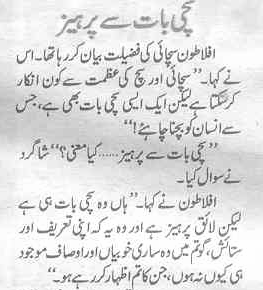 سچی بات سے پرہیز
افلاطون سچائی کی فضیلت بیان کر رہا تھا۔ اس
نے کہا۔ ’’سچائی اور سچ کی عظمت سے کون انکار
کرسکتا ہے لیکن ایک ایسی سچی بات بھی ہے، جس
سے انسان کو بچنا چاہئے!‘‘
’’سچی بات سے پرہیز......کیا معنی؟‘‘ شاگرد
نے سوال کیا۔
افلاطون نے کہا۔ ’’ہاں وہ سچی بات ہی ہے
لیکن لائق پرہیز ہے اور وہ یہ کہ اپنی تعریف اور
ستائش، گو تم میں وہ ساری خوبیاں اور اوصاف موجود
ہی کیوں نہ ہوں، جن کا تم اظہار کر رہے ہو۔‘‘